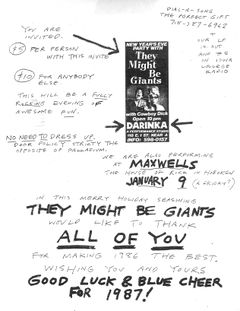 YOU ARE
INVITED.
$5 PER PERSON
WITH THIS INVITE
$10 FOR ANYBODY
ELSE
THIS WILL BE A FULLY
ROCKING EVENING OF
AWESOME FUN.
NO NEED TO DRESS UP.
DOOR POLICY STRICTLY THE
OPPOSITE OF PALLADIUM.
NEW YEAR'S EVE
PARTY WITH
They
Might
Be
Giants
with Cowboy Dick
Open 10pm
DARINKA
A PERFORMANCE STUDIO
118 E. 1 ST. NEAR A
INFO: 598-0157
DIAL-A-SONG
THE PERFECT GIFT
718-387-6962
OUR LP
IS OUT
AND IS
IN YOUR
RADIO
WE ARE ALSO PERFORMING
AT MAXWELLS
THE HOUSE OF ROCK IN HOBOKEN
JANUARY 9 (A FRIDAY)
IN THIS MERRY HOLIDAY SEASONING
THEY MIGHT BE GIANTS
WOULD LIKE TO THANK
ALL OF YOU
FOR MAKING 1986 THE BEST.
WISHING YOU AND YOURS
GOOD LUCK & BLUE CHEER
FOR 1987!